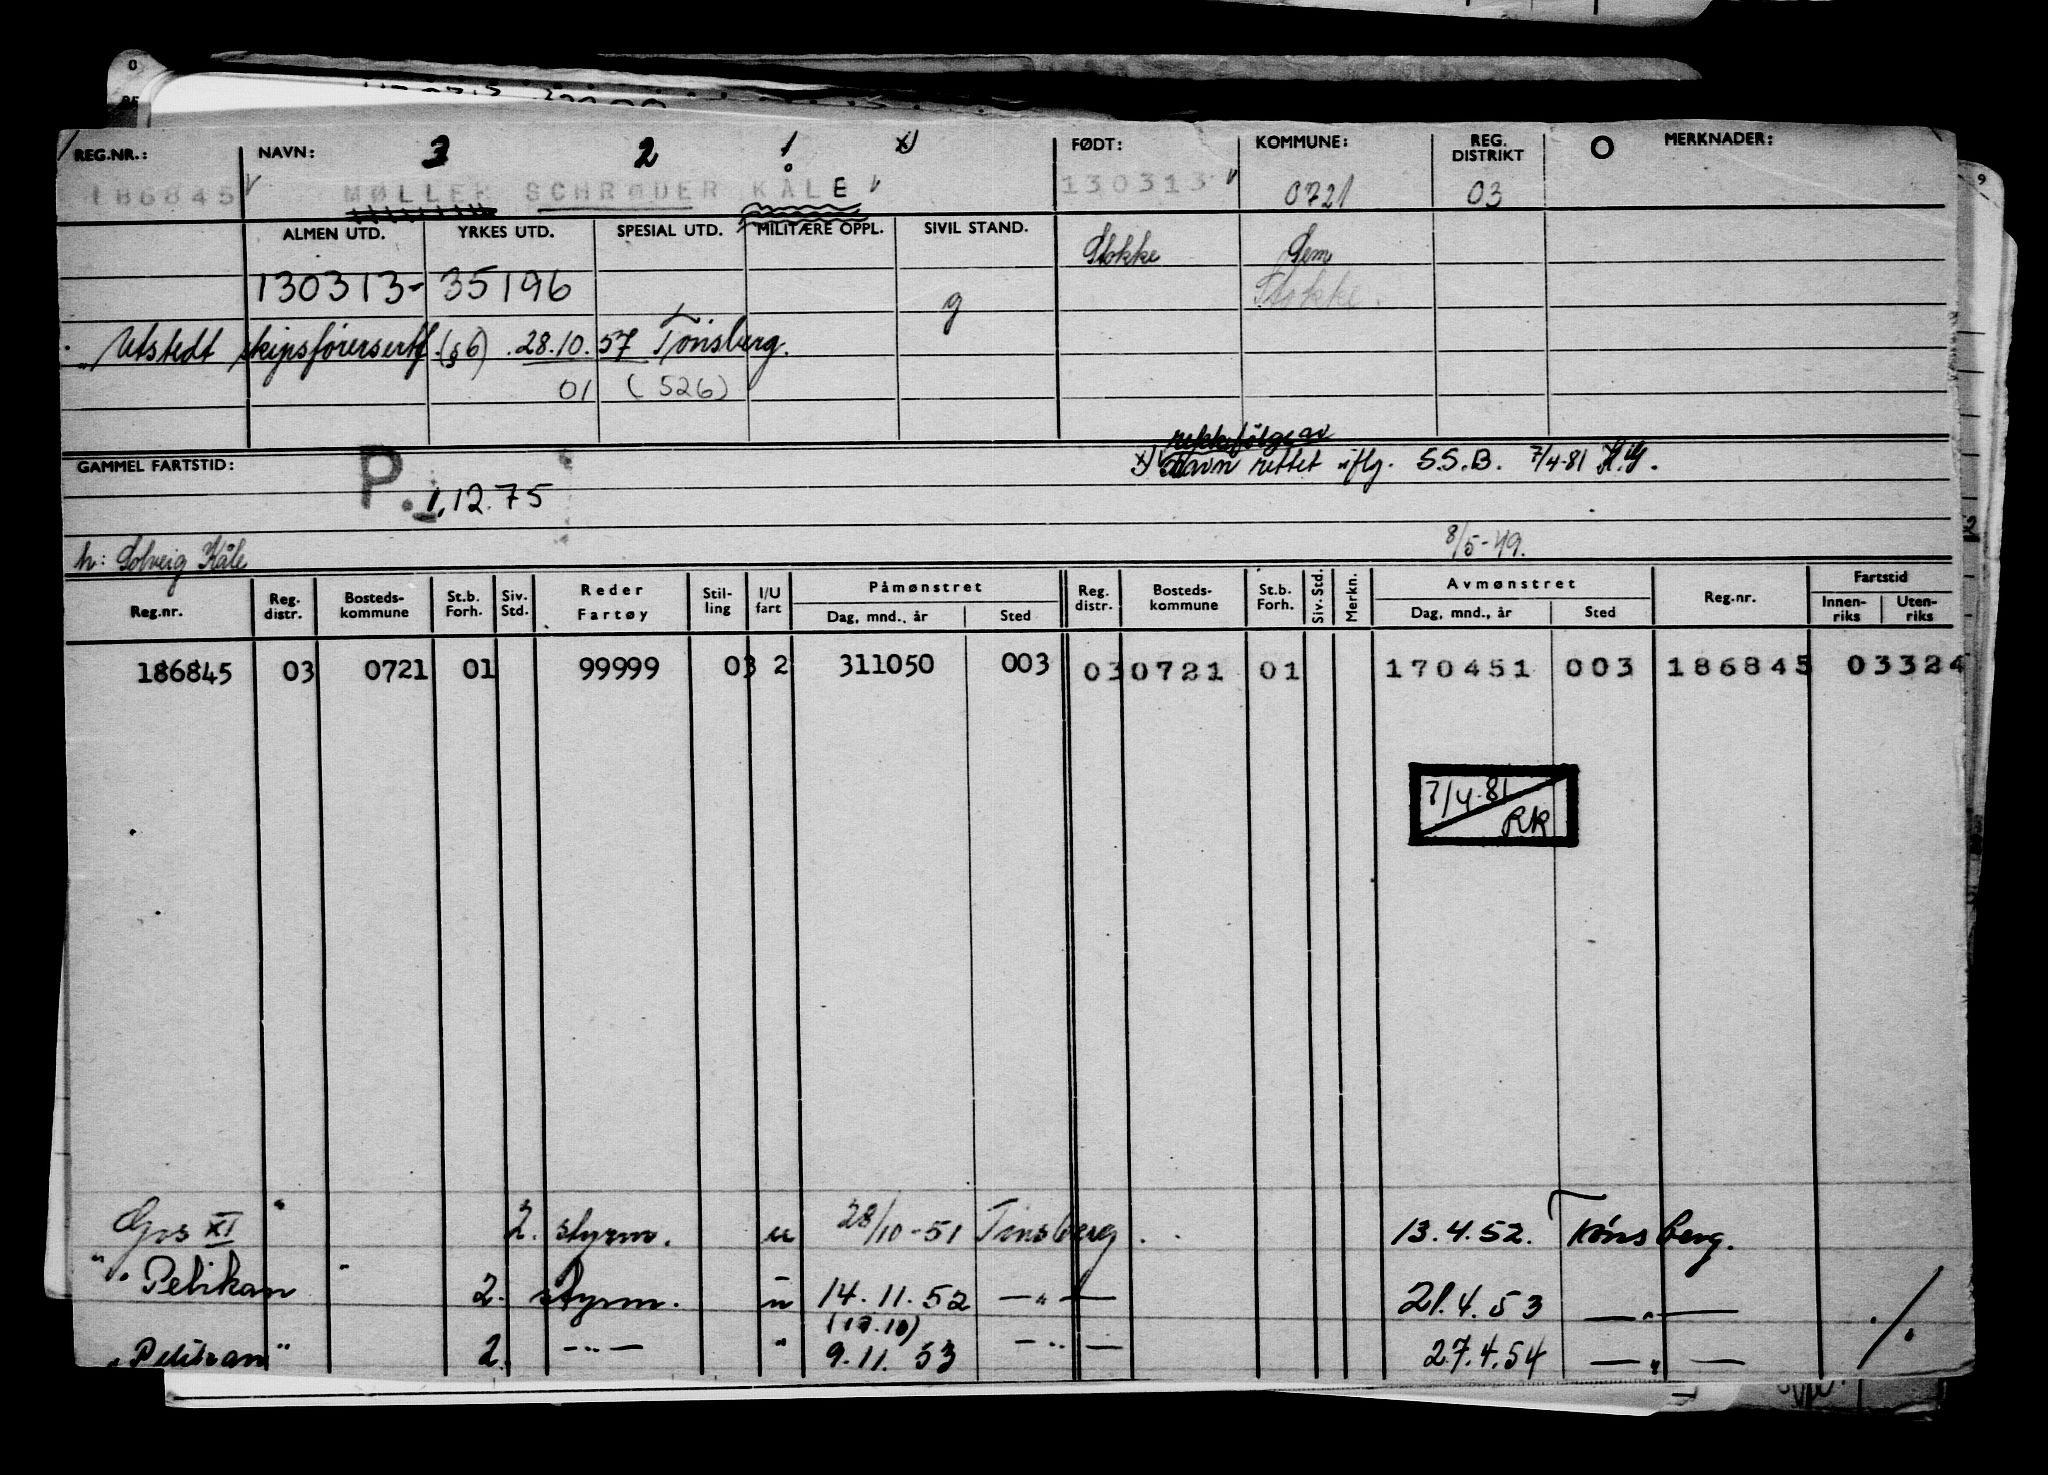 REG.NR.: NAVN: 3 2 1 x) FØDT: KOMMUNE: REG. DISTRIKT MERKNADER:
186845 MØLLER SCHRØDER KÅLE 130313 0721 03
ALMEN UTD. YRKES UTD. SPESIAL UTD. MILITÆRE OPPL. SIVIL STAND. Stokke Sem
130313- 35196 g Stokke.
Utstedt skipsførersertf. (§6) .28.10.57 Tønsberg.
01 (526)
rekkefølge av
GAMMEL FARTSTID: P. x) Navn rettet iflg. S.S.B. 7/4-81
1.12.75
h: Solveig Kåle 8/5-49.
Reg.nr. Reg. distr. Bosteds-kommune St.b. Forh. Siv. Std. Reder Fartøy Stil-ling I/U fart Påmønstret Dag, mnd., år Sted Reg. distr. Bosteds-kommune St.b. Forh. Siv. Std. Merkn. Avmønstret Dag, mnd., år Sted Reg.nr. Fartstid Innen-riks Uten-riks
186845 03 0721 01 99999 03 2 311050 003 03 0721 01 170451 003 186845 03324
7/4-81
RK
Gos XI " 2. styrm. u 28/10-51 Tønsberg. 13.4.52. Tønsberg.
" Pelikan " 2. styrm. u 14.11.52 —"— 21.4.53 —"—
(17.10)
"Pelikan" 2. —"— " 9.11.53 —"— 27.4.54 —"— ./.